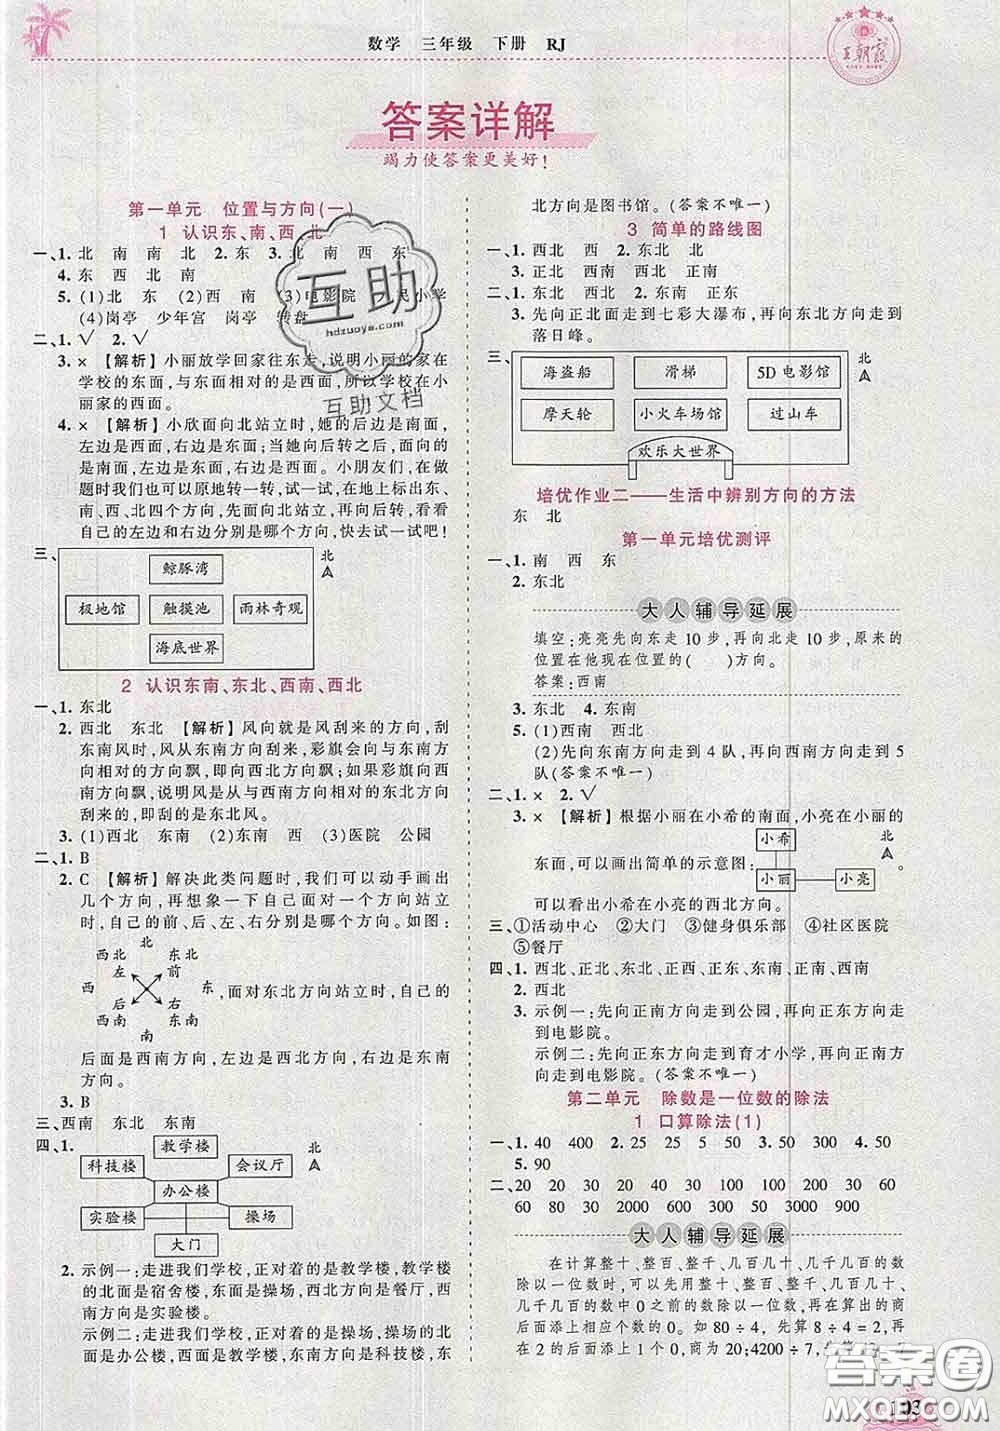 数学 三年级 下册 RJ
王朝霞
答案详解
竭力使答案更美好!
第一单元 位置与方向(一)
1 认识东、南、西、北
一、1. 北 南 南 北 2. 东 3. 北 南 西 东
4. 东 西 北 南
5. (1)北 东 (2)西 南 (3)电影院 民小学
(4)岗亭 少年宫 岗亭 转盘
二、1. √ 2. √
3. × 【解析】小丽放学回家往东走,说明小丽的家在
学校的东面,与东面相对的是西面,所以学校在小
丽家的西面。
4. × 【解析】小欣面向北站立时,她的后边是南面,
左边是西面,右边是东面;当她向后转之后,面向的
是南面,左边是东面,右边是西面。小朋友们,在做
题时我们也可以原地转一转,试一试,在地上标出东、
南、西、北四个方向,先面向北站立,再向后转,看看
自己的左边和右边分别是哪个方向,快去试一试吧!
三、
鲸豚湾
北
极地馆 触摸池 雨林奇观
海底世界
2 认识东南、东北、西南、西北
一、1. 东北
2. 西北 东北 【解析】风向就是风刮来的方向,刮
东南风时,风从东南方向刮来,彩旗会向与东南方
向相对的方向飘,即向西北方向飘;如果彩旗向西
南方向飘,说明风是从与西南方向相对的东北方向
刮来的,即刮的是东北风。
3. (1)西北 东南 (2)东南 西 (3)医院 公园
二、1. B
2. C 【解析】解决此类问题时,我们可以动手画出
几个方向,再想象一下自己面对一个方向站立
时,自己的前、后、左、右分别是哪个方向。如图:
北
西北 东北
左 前
西 东,面对东北方向站立时,自己的
后 右
西南 东南
南
后面是西南方向,左边是西北方向,右边是东南
方向。
3. B
三、西南 东北 东南
四、1.
教学楼 北
科技楼 会议厅
办公楼
实验楼 操场
大门
2. 示例一:走进我们学校,正对着的是教学楼,教学楼
的北面是宿舍楼,东面是操场,西北方向是餐厅,西
南方向是实验楼。
示例二:走进我们学校,正对着的是操场,操场的
北面是办公楼,西面是教学楼,东南方向是科技楼,东
北方向是图书馆。(答案不唯一)
3 简单的路线图
一、1. 西北 西 2. 东北 北
3. 正北 西南 西北 正南
二、1. 东北 西北 2. 东南 正东
3. 先向正北面走到七彩大瀑布,再向东北方向走到
落日峰。
三、
海盗船 滑梯 5D 电影馆 北
摩天轮 小火车场馆 过山车
欢乐大世界
培优作业二——生活中辨别方向的方法
东 北
第一单元培优测评
一、1. 南 西 东
2. 东北
大人辅导延展
填空:亮亮先向东走 10 步,再向北走 10 步,原来的
位置在他现在位置的( )方向。
答案:西南
3. 东北 4. 东南
5. (1)西南 西北
(2)先向东南方向走到 4 队,再向西南方向走到 5
队(答案不唯一)
二、1. × 2. √
3. × 【解析】根据小丽在小希的南面,小亮在小丽的
小希 北
东面,可以画出简单的示意图:
小丽 小亮
可以看出小希在小亮的西北方向。
三、①活动中心 ②大门 ③健身俱乐部 ④社区医院
⑤餐厅
四、1. 西北、正北、东北、正西、正东、东南、正南、西南
2. 西北
3. 示例一:先向正南方向走到公园,再向正东方向走
到电影院。
示例二:先向正东方向走到育才小学,再向正南方
向走到电影院。(答案不唯一)
第二单元 除数是一位数的除法
1 口算除法(1)
一、1. 40 400 2. 25 25 5 50 3. 50 300 4. 300
5. 90
二、20 20 100 200 20 100 200 30 90 30
60 80 30 200 2000 800 3000 900 50
大人辅导延展
在计算整十、整百、整千、几百几十、几千几百的数
除以一位数时,可以先用整十、整百、整千、几百几十、
几千几百的数中 0 之前的数除以一位数,再在算出的商
后添上相应个数的 0。如 80÷4,先算 8÷4=2,再
在 2 的后面添上 1 个 0,商为 20;4200÷7,先
103
互助
hdzuoye.com
互助文档
答案圈
MXQE.COM